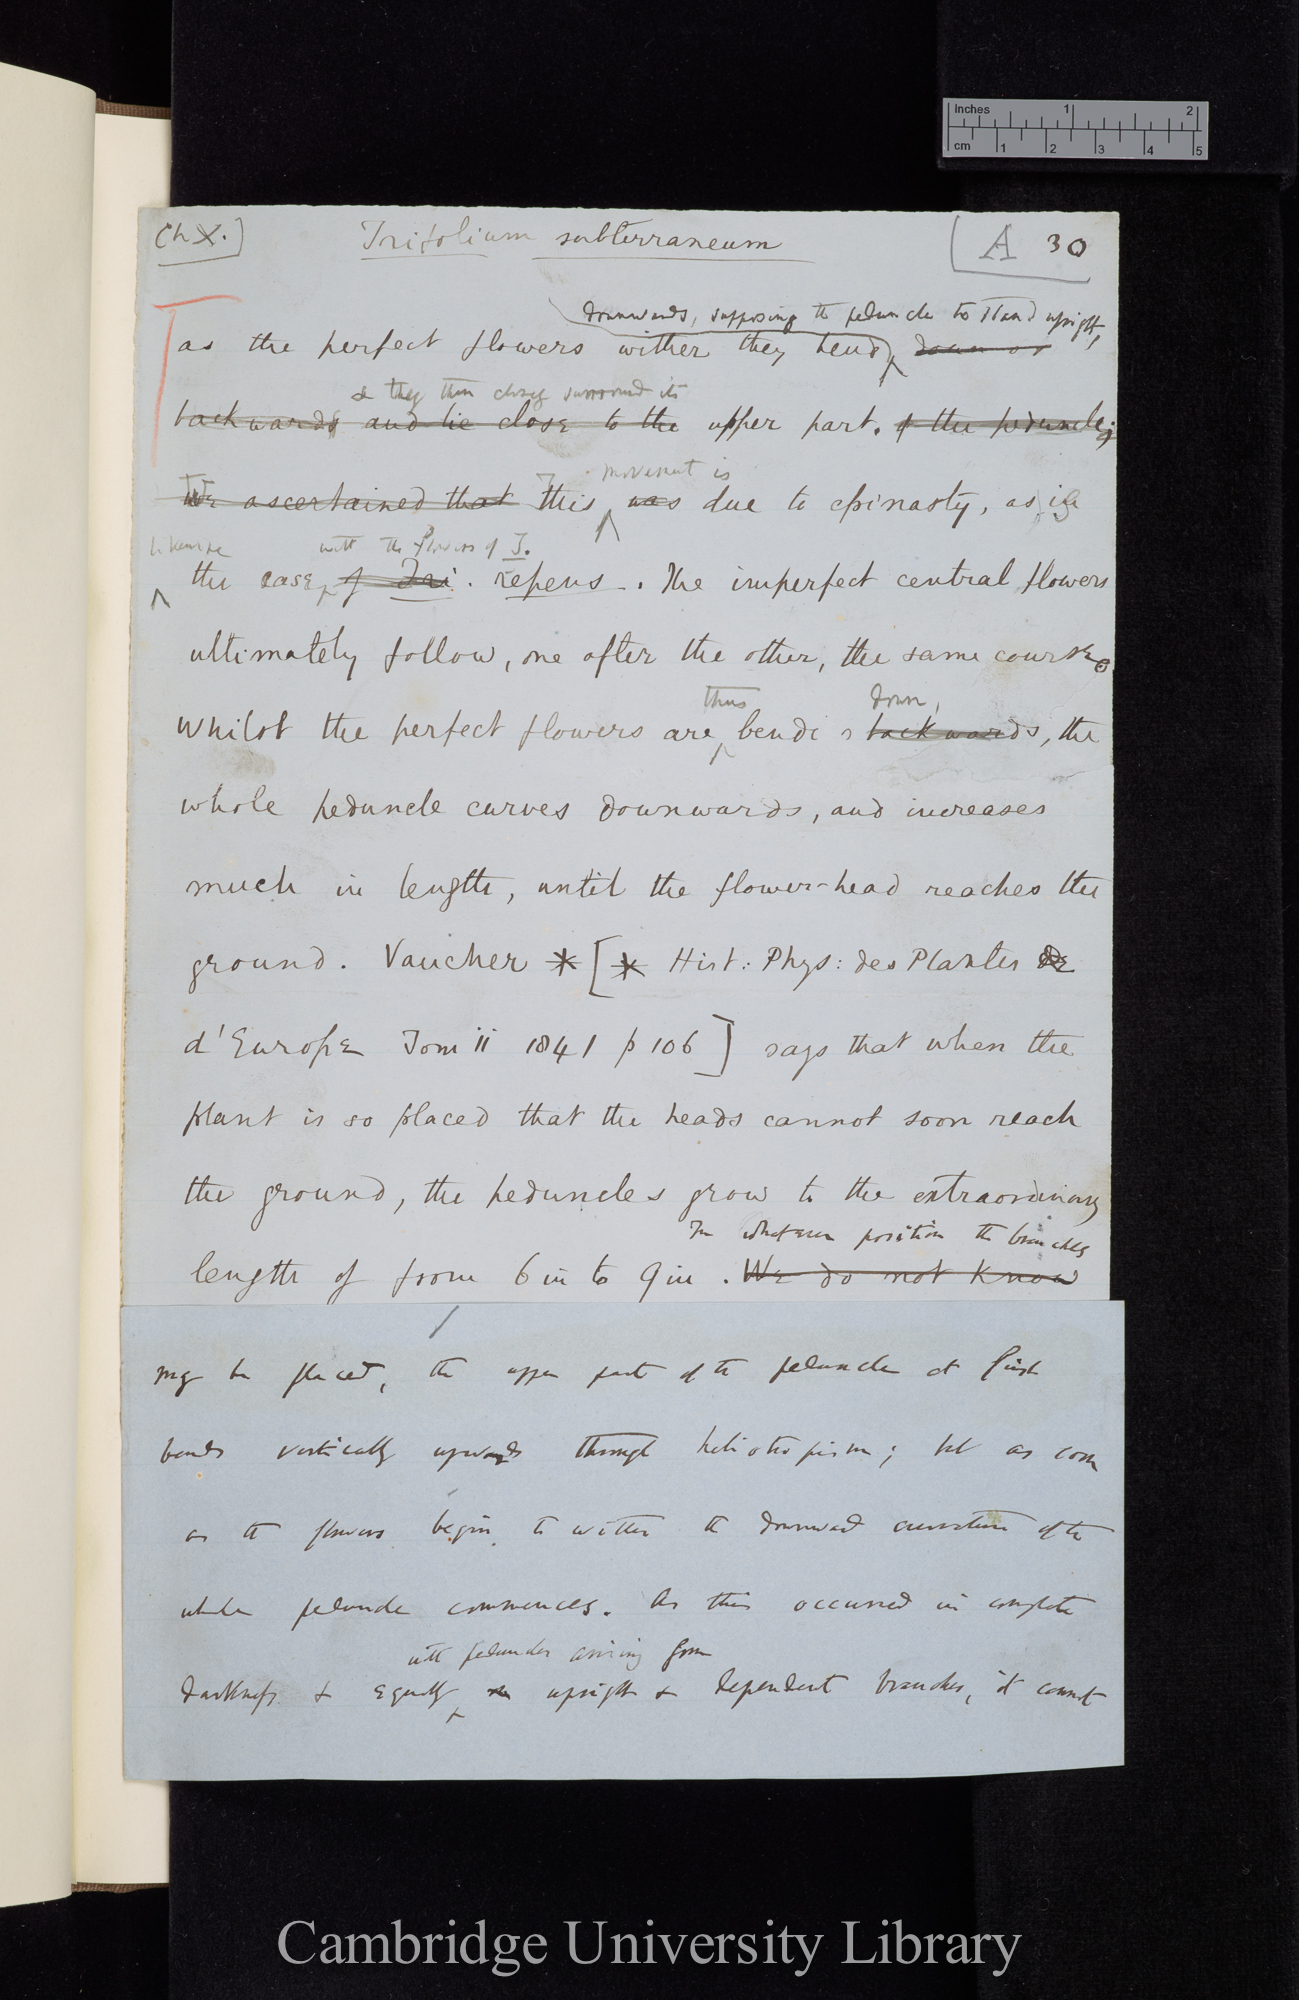 Inches 1 2
cm 1 2 3 4 5
Ch X.]
Trifolium subterraneum
[A 30
downwards, supposing the peduncle to stand upright,
as the perfect flowers wither they bend down or
& they then closely surround its
backwards and lie close to the upper part. of the peduncle;
movement is
We ascertained that this was due to epinasty, as in
likewise with the flowers of T.
the case of Tri. repens. The imperfect central flowers
ultimately follow, one after the other, the same course.
thus down,
Whilst the perfect flowers are bending backwards, the
whole peduncle curves downwards, and increases
much in length, until the flower-head reaches the
ground. Vaucher * [* Hist: Phys: des Plantes de
d'Europe Tom ii 1841 p 106] says that when the
plant is so placed that the heads cannot soon reach
the ground, the peduncles grow to the extraordinary
In whatever position the branches
length of from 6 in to 9 in. We do not know
may be placed, the upper part of the peduncle at first
bends vertically upwards through heliotropism; but as soon
as the flowers begin to wither the downward curvature of the
whole peduncle commences. As this occurred in complete
with peduncles arising from
darkness & equally in upright & dependent branches, it cannot
Cambridge University Library